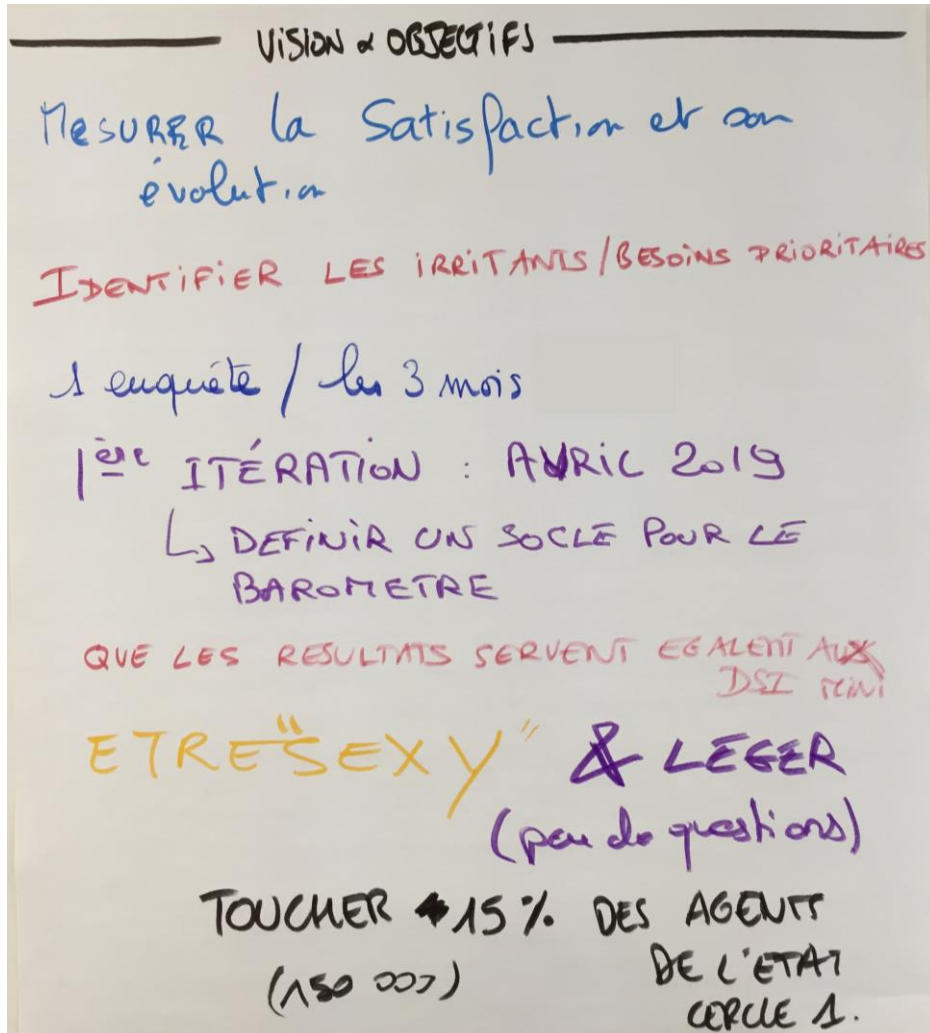 VISION & OBJECTIFS
MESURER la Satisfaction et son
évolution
IDENTIFIER LES IRRITANTS/BESOINS PRIORITAIRES
1 enquête / les 3 mois
1ère ITÉRATION : AVRIL 2019
↳ DEFINIR UN SOCLE POUR LE
BAROMETRE
QUE LES RESULTATS SERVENT EGALEMT AUX
DSI MINI
ETRE "SEXY" & LEGER
(peu de questions)
TOUCHER 15% DES AGENTS
(150 000) DE L'ETAT
CERCLE 1.